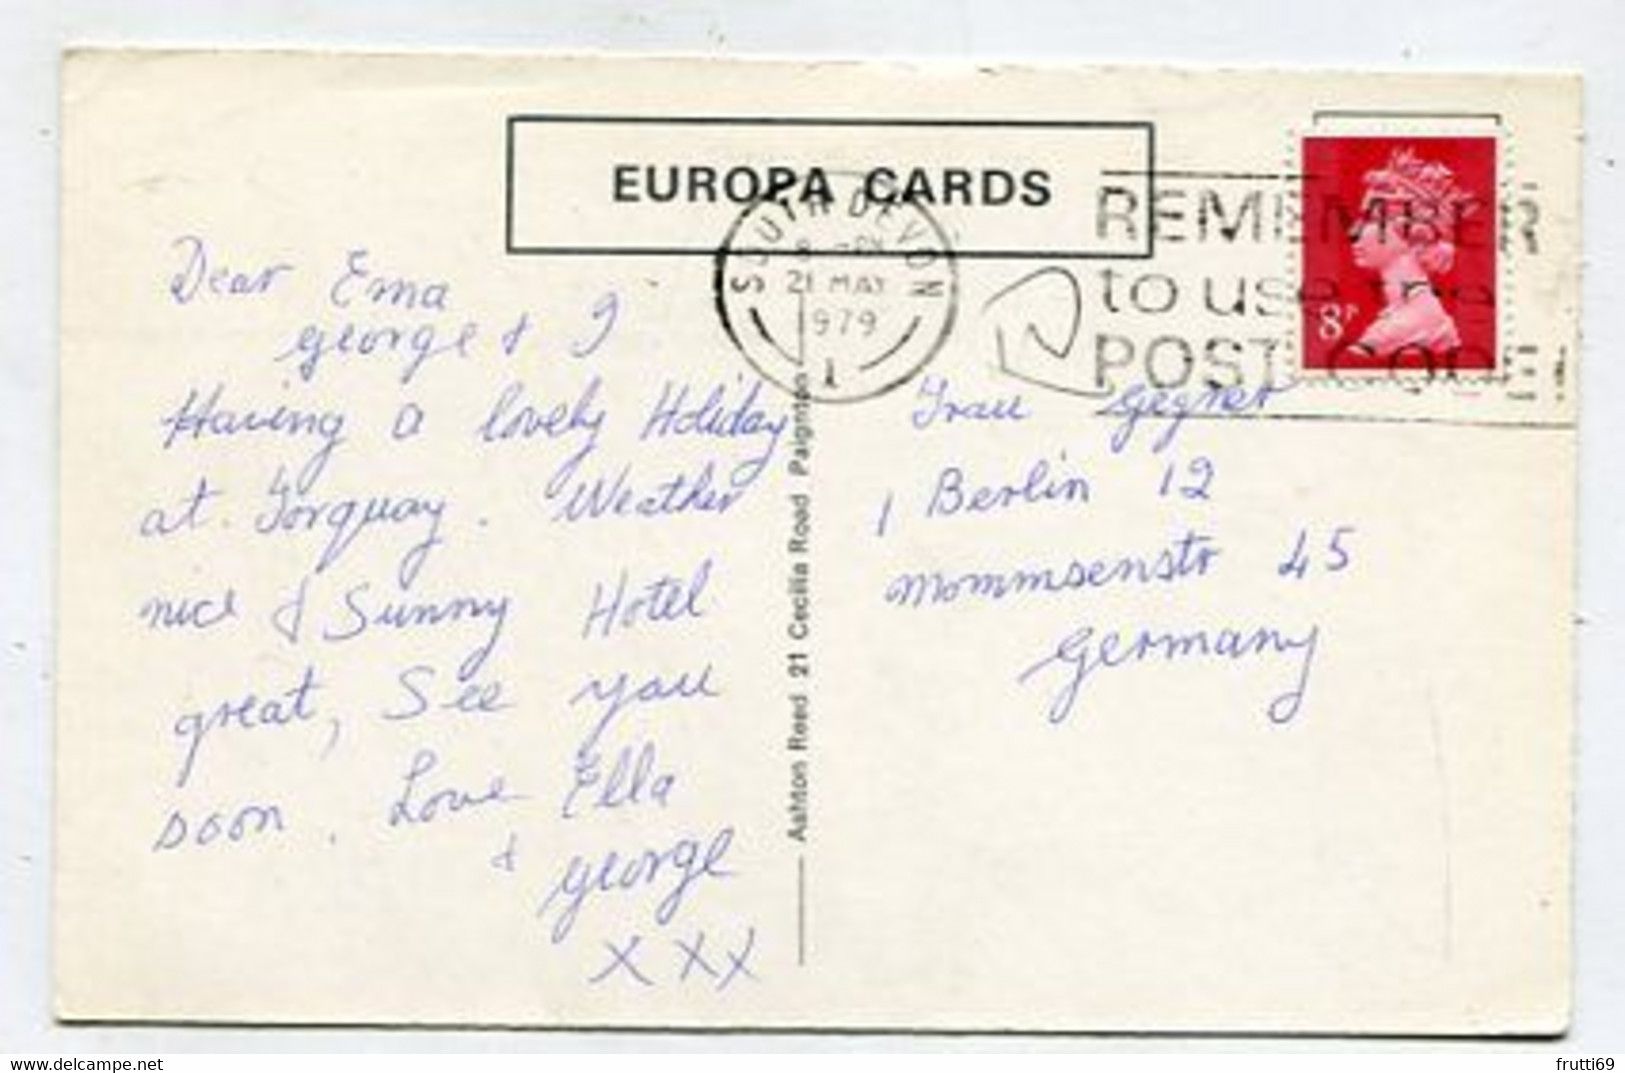 EUROPA CARDS
SOUTH DEVON
8 - PM
21 MAY
1979
1
REMEMBER
to use the
POST CODE
8P
Dear Ema
George & I
Having a lovely Holiday
at Torquay. Weather
nice & Sunny Hotel
great, See you
soon. Love Ella
& George
xxx
Ashton Reed 21 Cecilia Road Paignton
Frau Gegner
1 Berlin 12
Mommsenstr 45
Germany
frutti69